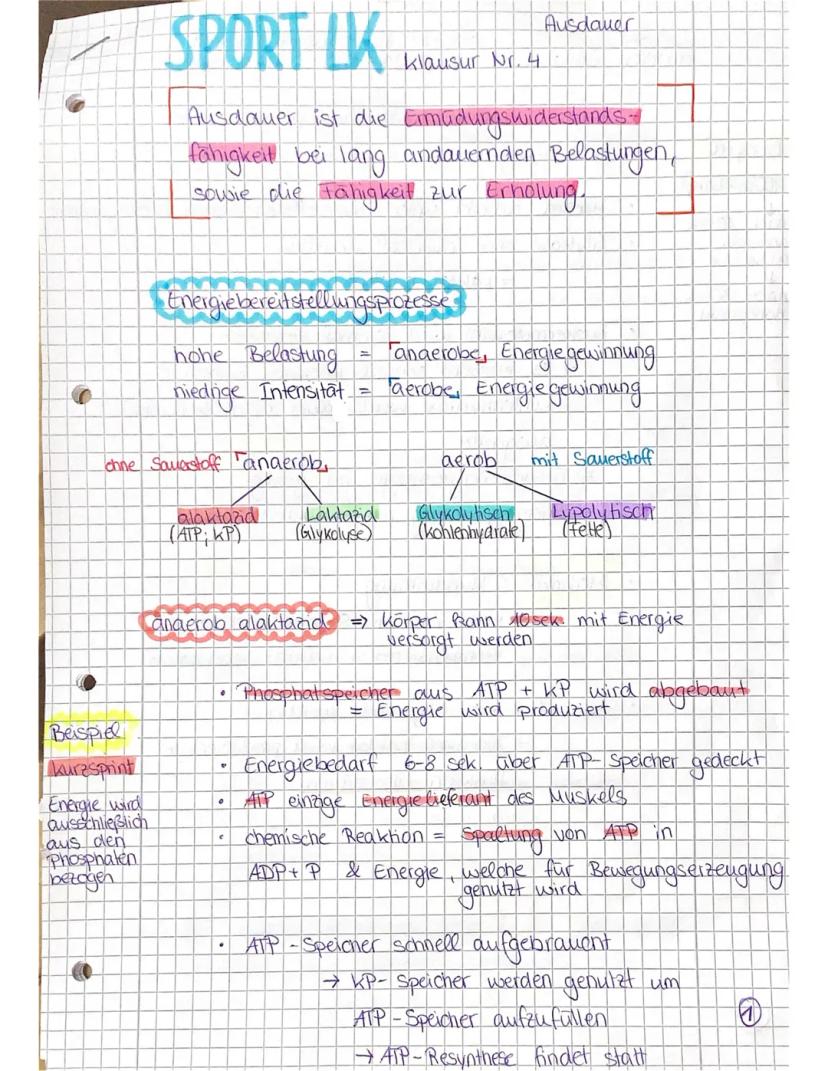 SPORT LK
Ausdauer
Klausur Nr. 4
Ausdauer ist die Ermüdungswiderstands-
fähigkeit bei lang andauernden Belastungen,
sowie die Fähigkeit zur Erholung.
Energiebereitstellungsprozesse
hohe Belastung = anaerobe Energiegewinnung
niedrige Intensität = aerobe Energiegewinnung
ohne Sauerstoff anaerob
aerob mit Sauerstoff
alaktazid
(ATP; KP)
Laktazid
(Glykolyse)
Glykolytisch
(Kohlenhydrate)
Lypolytisch
(Fette)
anaerob alaktazid => Körper kann 10sek mit Energie
versorgt werden
• Phosphatspeicher aus ATP + KP wird abgebaut
= Energie wird produziert
Beispiel
Kurzsprint
Energie wird
ausschließlich
aus den
Phosphaten
bezogen
• Energiebedarf 6-8 sek. über ATP-Speicher gedeckt
• ATP einzige Energielieferant des Muskels
• chemische Reaktion = Spaltung von ATP in
ADP + P & Energie, welche für Bewegungserzeugung
genutzt wird
• ATP-Speicher schnell aufgebraucht
→ KP-Speicher werden genutzt um
ATP-Speicher aufzufüllen
→ ATP-Resynthese findet statt
1